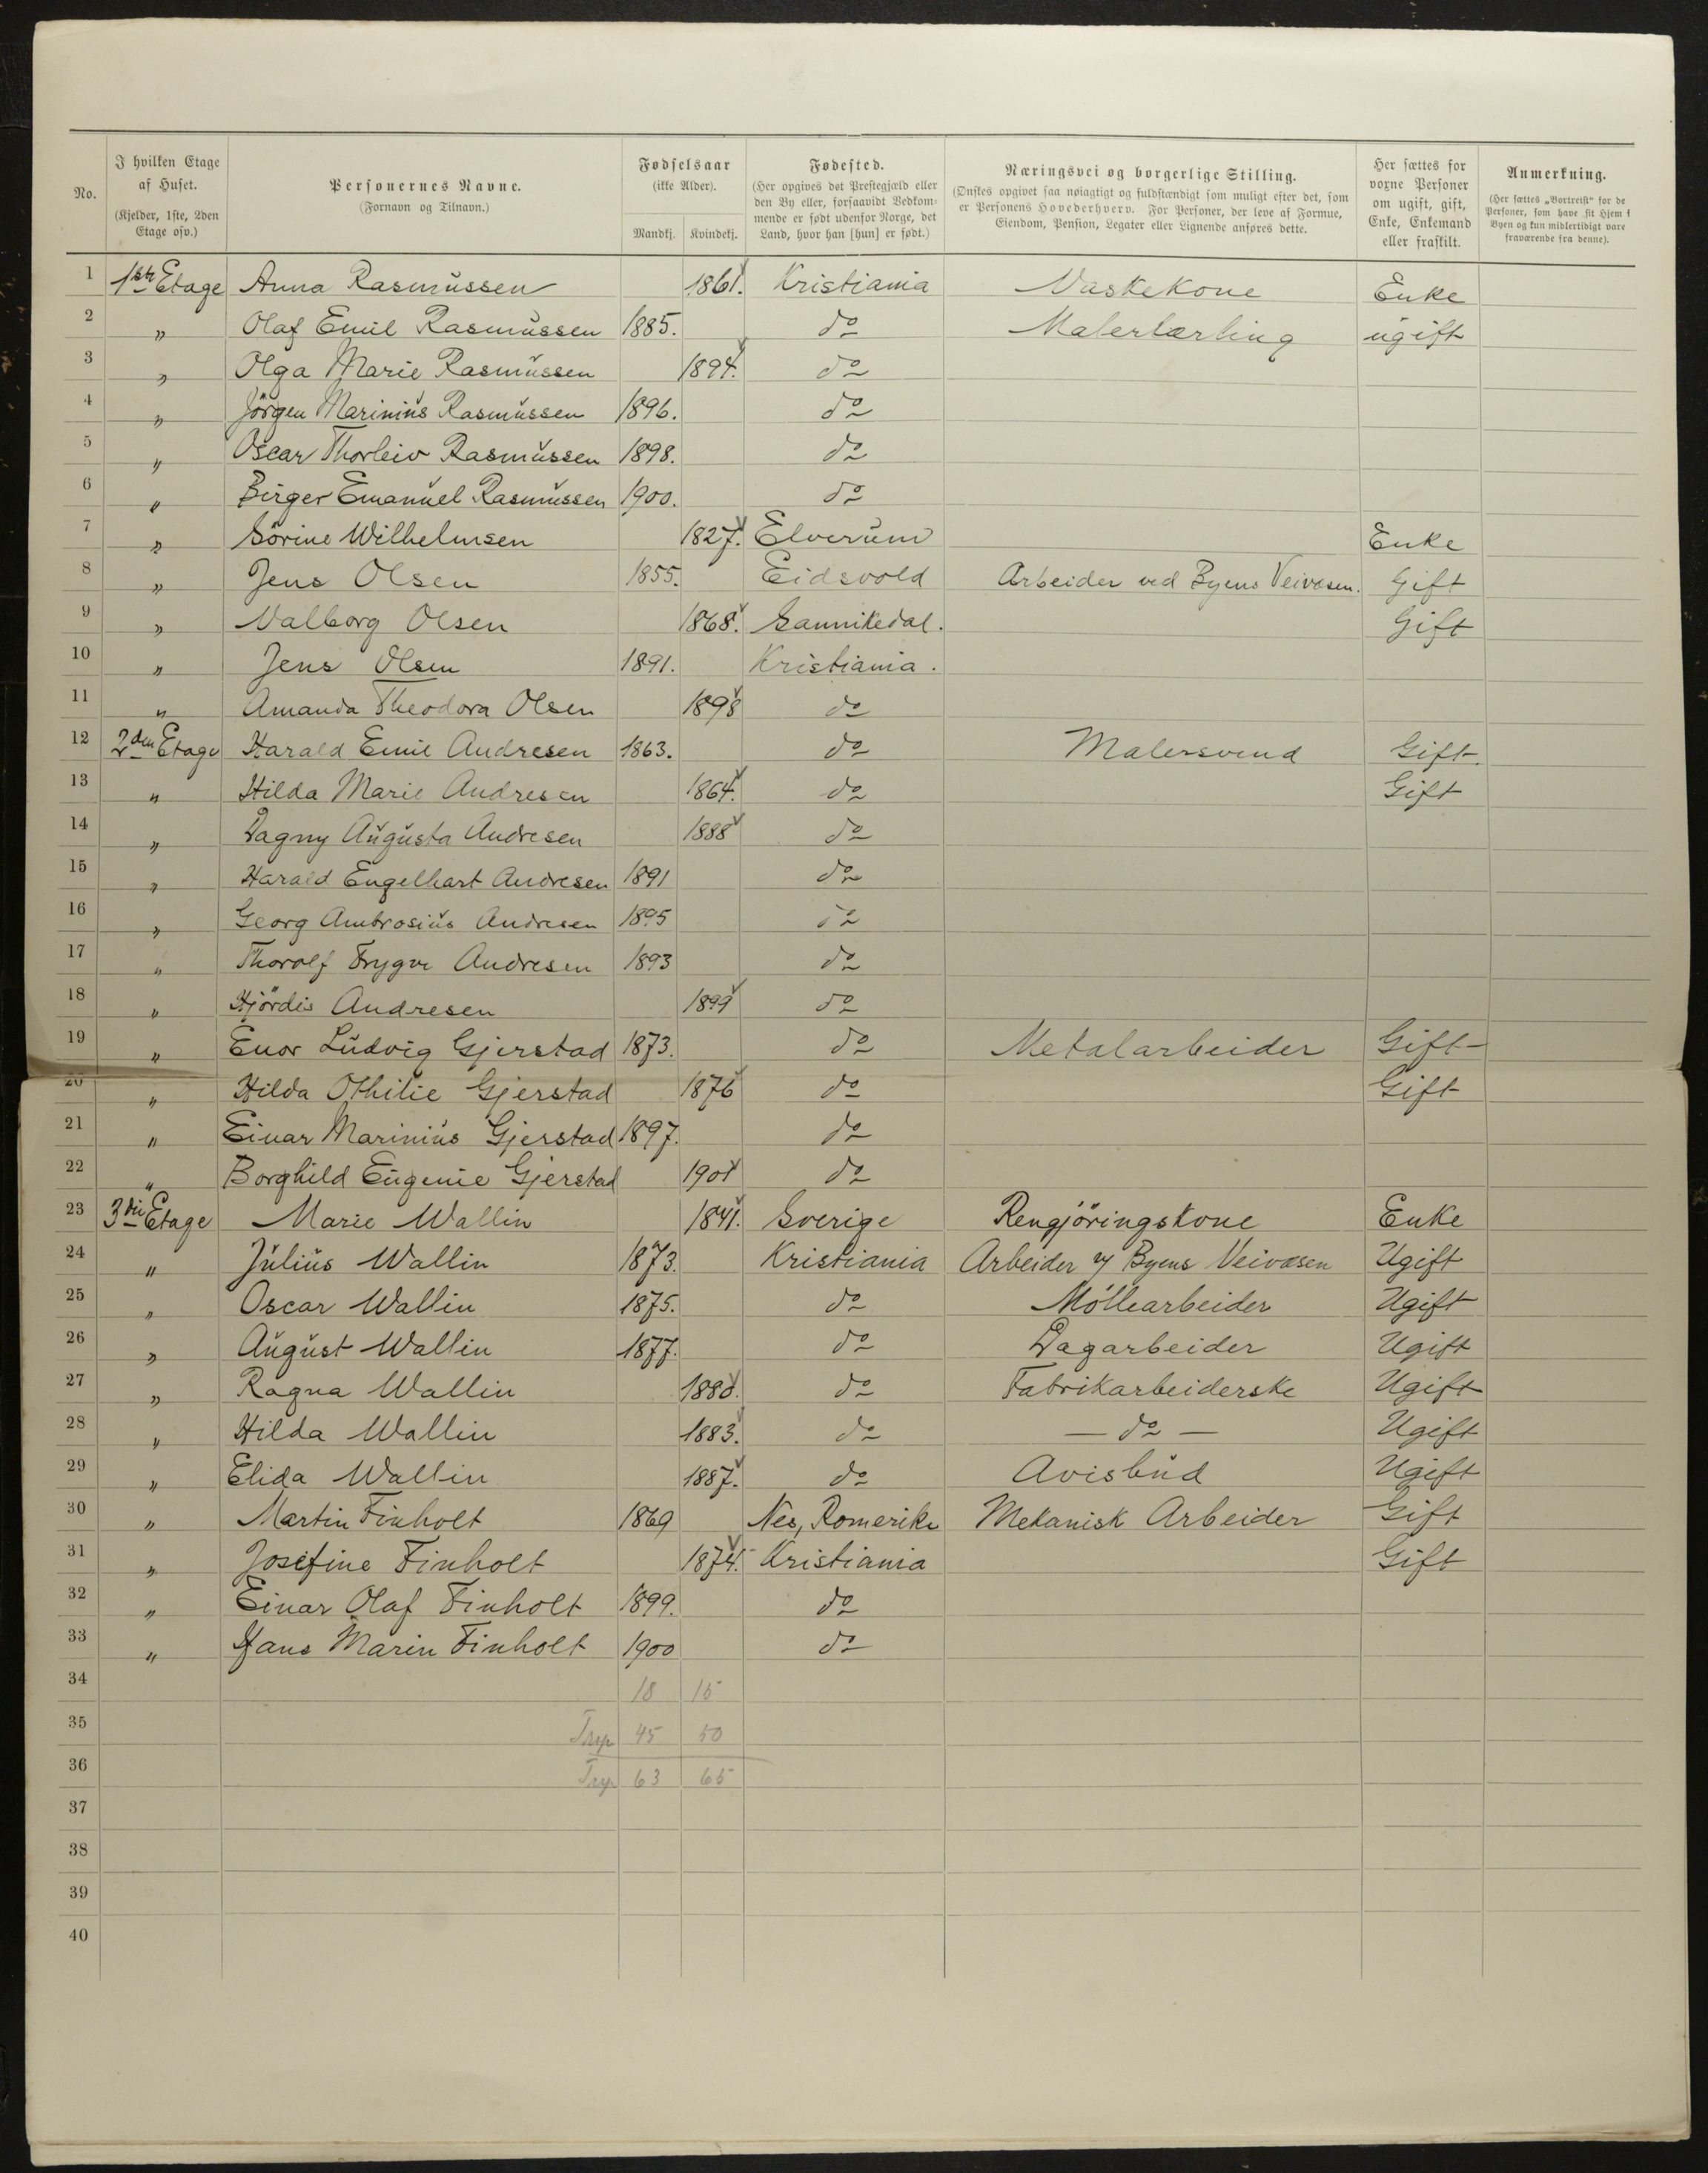 No.
I hvilken Etage af Huset.
(Kjelder, 1ste, 2den Etage osv.)
Personernes Navne.
(Fornavn og Tilnavn.)
Fødselsaar
(ikke Alder).
Mandkj. Kvindekj.
Fødested.
(Her opgives det Prestegjæld eller den By eller, forsaavidt Vedkommende er født udenfor Norge, det Land, hvor han [hun] er født.)
Næringsvei og borgerlige Stilling.
(Ønskes opgivet saa nøiagtigt og fuldstændigt som muligt efter det, som er Personens Hovederhverv. For Personer, der leve af Formue, Eiendom, Pension, Legater eller Lignende anføres dette.
Her sættes for voxne Personer om ugift, gift, Enke, Enkemand eller fraskilt.
Anmerkning.
(Her sættes „Bortreist“ for de Personer, som have sit Hjem i Byen og kun midlertidigt vare fraværende fra denne).
1 1ste Etage Anna Rasmussen 1861. Kristiania Vaskekone Enke
2 " Olaf Emil Rasmussen 1885. do Malerlærling ugift
3 " Olga Marie Rasmussen 1894. do
4 " Jörgen Marinius Rasmussen 1896. do
5 " Oscar Thorleiv Rasmussen 1898. do
6 " Birger Emanuel Rasmussen 1900. do
7 " Sörine Wilhelmsen 1827. Elverum Enke
8 " Jens Olsen 1855. Eidsvold Arbeider ved Byens Veivæsen. Gift
9 " Valborg Olsen 1868. Sannikedal. Gift
10 " Jens Olsen 1891. Kristiania.
11 " Amanda Theodora Olsen 1898 do
12 2den Etage Harald Emil Andresen 1863. do Malersvend Gift.
13 " Hilda Marie Andresen 1864. do Gift
14 " Dagny Augusta Andresen 1888 do
15 " Harald Engelhart Andresen 1891 do
16 " Georg Ambrosius Andresen 1895 do
17 " Thorolf Trygve Andresen 1893 do
18 " Hjördis Andresen 1899 do
19 " Enor Ludvig Gjerstad 1873. do Metalarbeider Gift
20 " Hilda Othilie Gjerstad 1876 do Gift
21 " Einar Marinius Gjerstad 1897. do
22 " Borghild Eugenie Gjerstad 1901 do
23 3die Etage Marie Wallin 1841. Sverige Rengjöringskone Enke
24 " Julius Wallin 1873. Kristiania Arbeider v/ Byens Veivæsen Ugift
25 " Oscar Wallin 1875. do Möllearbeider Ugift
26 " August Wallin 1877. do Dagarbeider Ugift
27 " Ragna Wallin 1880. do Fabrikarbeiderske Ugift
28 " Hilda Wallin 1883. do — do — Ugift
29 " Elida Wallin 1887. do Avisbud Ugift
30 " Martin Finholt 1869 Nes, Romerike Mekanisk Arbeider Gift
31 " Josefine Finholt 1874. Kristiania Gift
32 " Einar Olaf Finholt 1899. do
33 " Hans Marin Finholt 1900 do
34 18 15
35 45 50
36 63 65
37
38
39
40